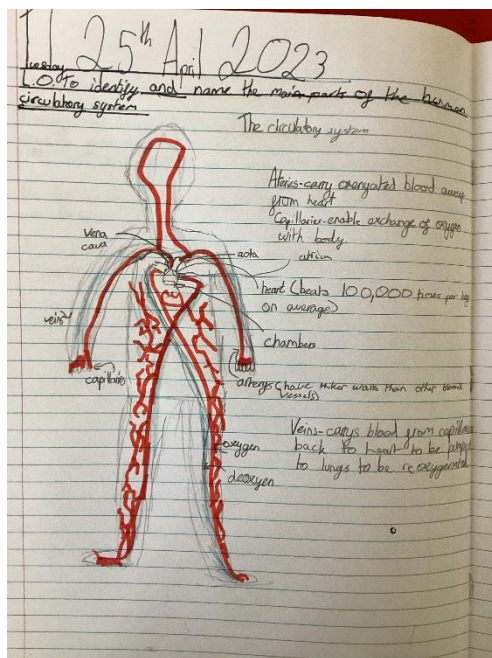 Tuesday 25th April 2023
L.O. To identify and name the main parts of the human
circulatory system
The circulatory system
Ateries-carry oxengated blood away
from heart
Capillaries-enable exchange of oxygen
with body.
Vena
cava
aota
atrium
heart (beats 100,000 times per day
on average)
veins
chambers
capillaries
arterys (have thiker walls than other blood
vessels)
Veins-carrys blood from capillaries
back to heart to be
to lungs to be reoxygenated
oxygen
deoxyen